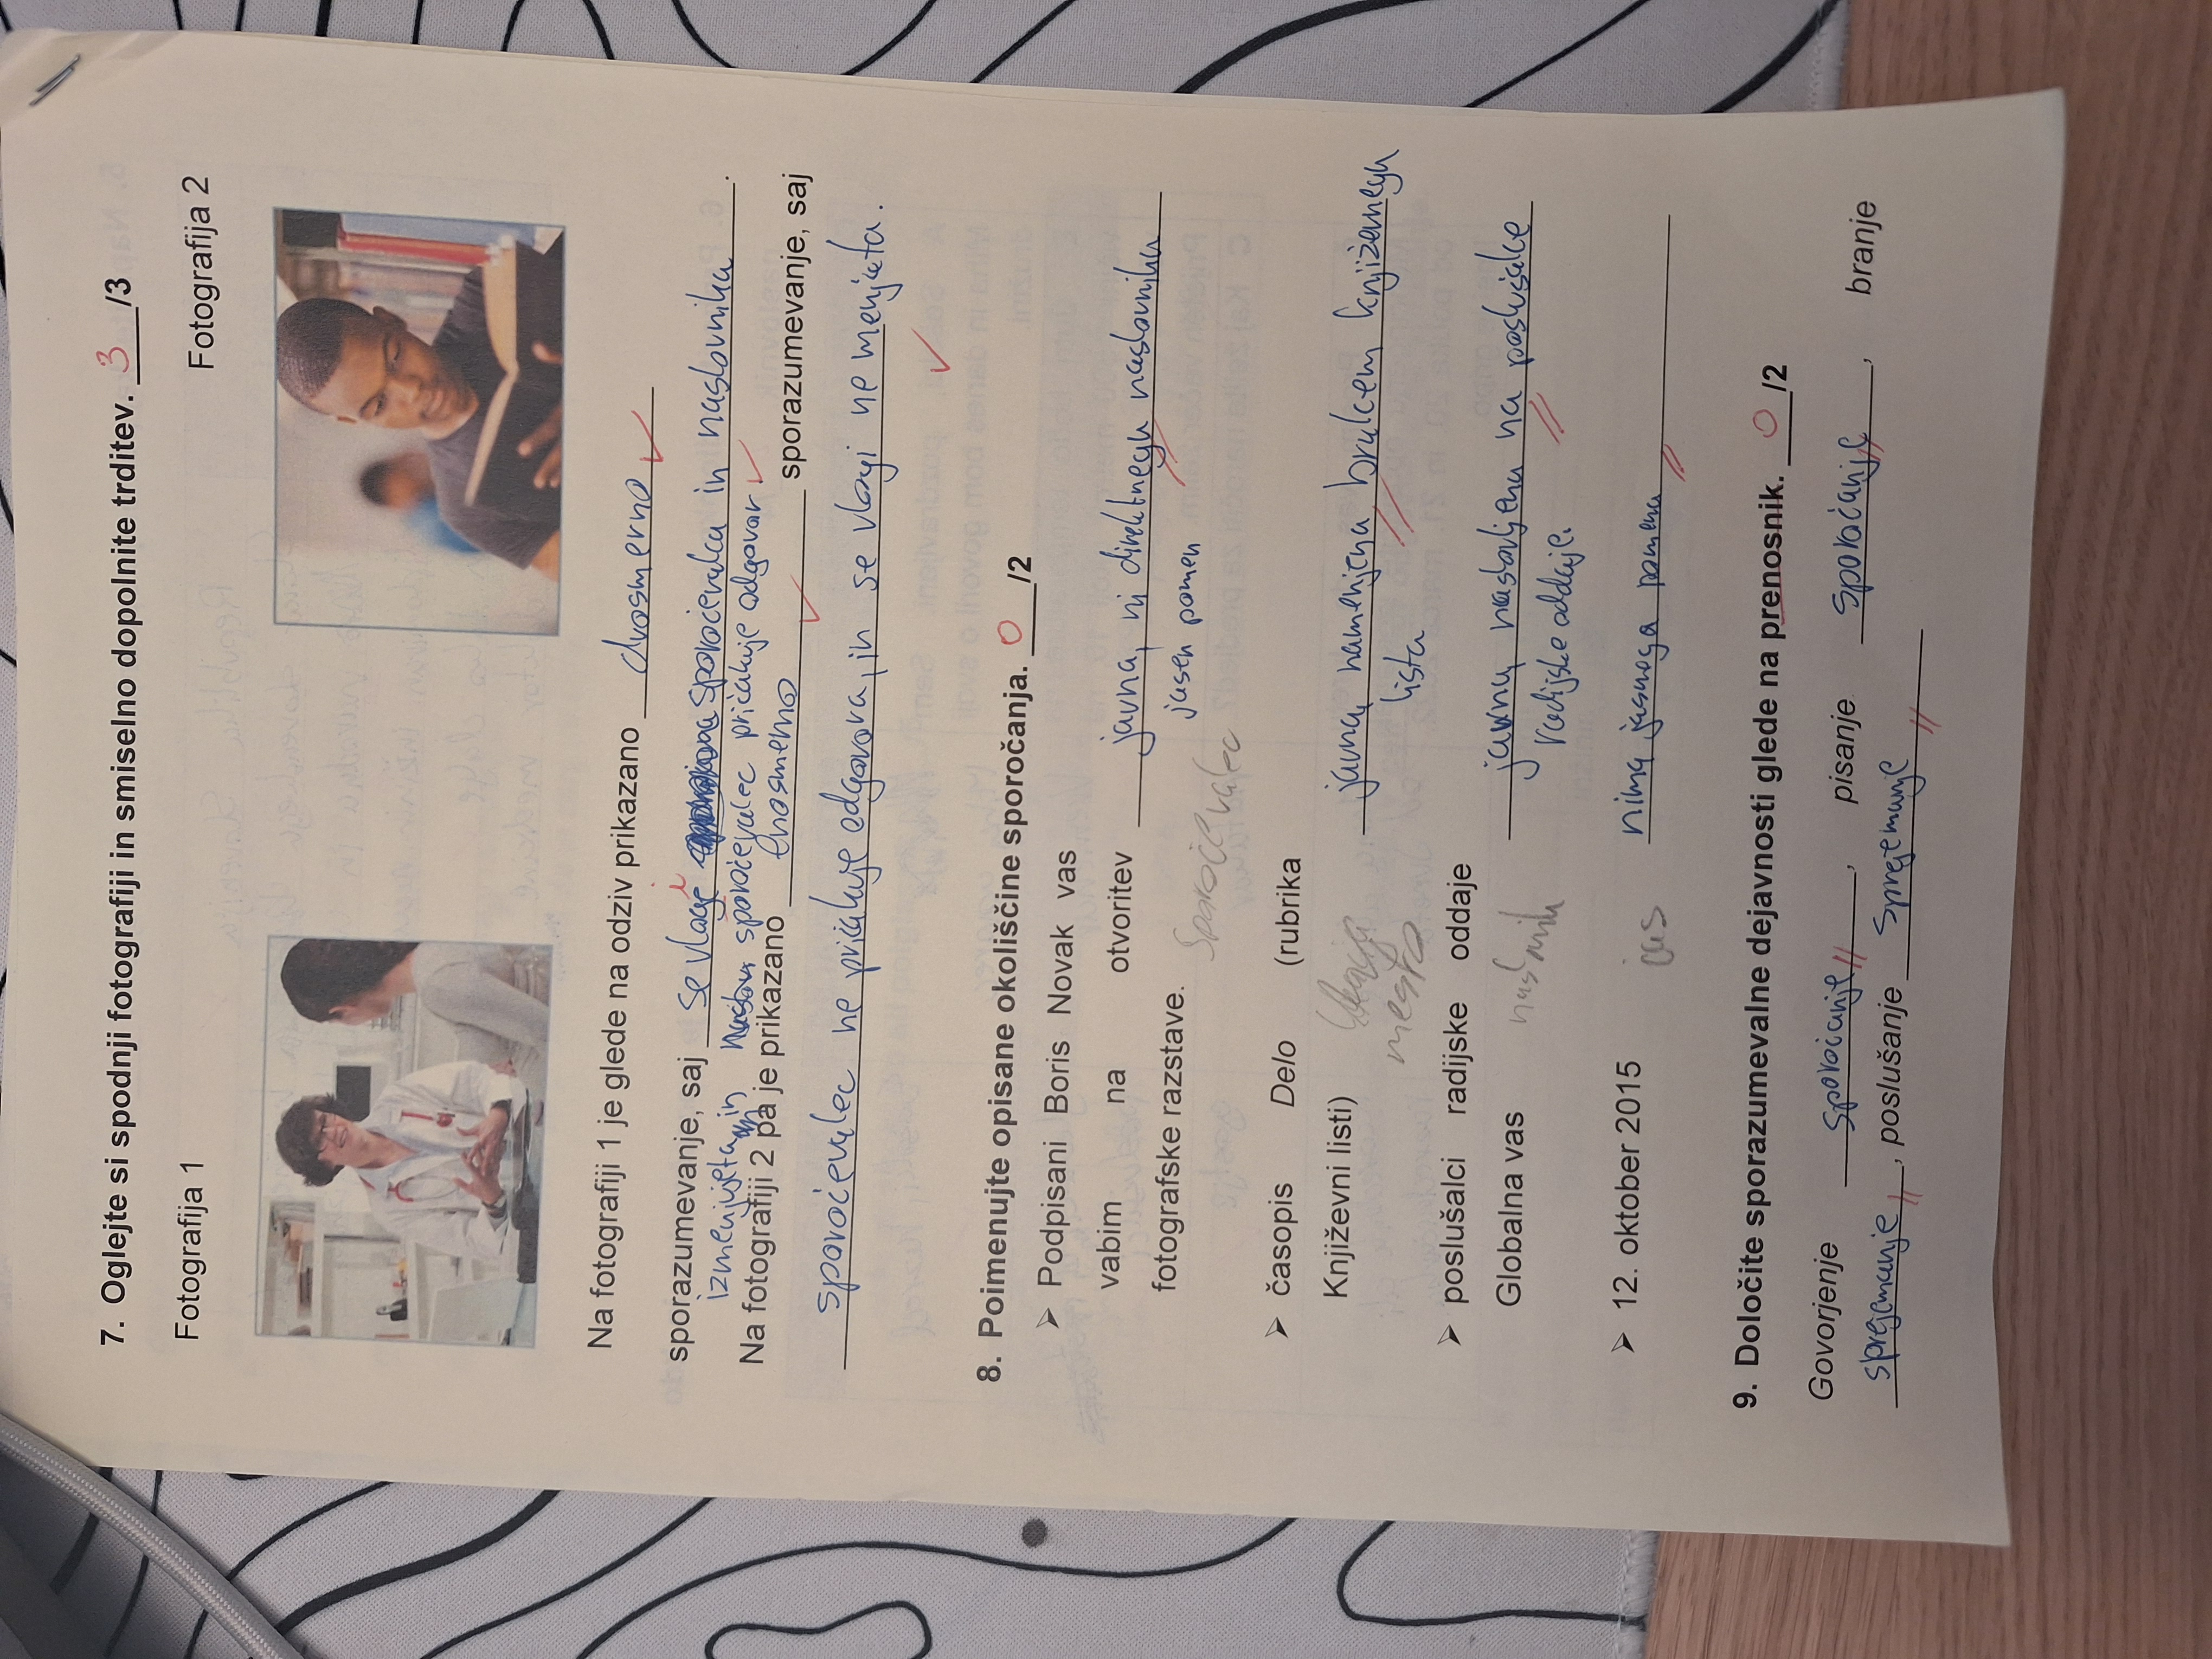 7. Oglejte si spodnji fotografiji in smiselno dopolnite trditev. 3/3
Fotografija 1 Fotografija 2
Na fotografiji 1 je glede na odziv prikazano dvosmerno
i
sporazumevanje, saj se vloge sporočevalca in naslovnika.
izmenjujeta in sporočevalec pričakuje odgovor
Na fotografiji 2 pa je prikazano enosmerno sporazumevanje, saj
sporočevalec ne pričakuje odgovora, in se vlogi ne menjata.
8. Poimenujte opisane okoliščine sporočanja. 0/2
Podpisani Boris Novak vas
vabim na otvoritev javna, ni direktnega naslovnika
fotografske razstave. jasen pomen
Sporočevalec
časopis Delo (rubrika
Književni listi) javna, namenjena bralcem knjižemega
mesto lista
poslušalci radijske oddaje
Globalna vas naslovnik javna, naslovljena na poslušalce
radijske oddaje.
12. oktober 2015 čas nima jasnega pomena
9. Določite sporazumevalne dejavnosti glede na prenosnik. 0/2
Govorjenje sporočanje, pisanje sporočanje, branje
sprejemanje, poslušanje sprejemanje